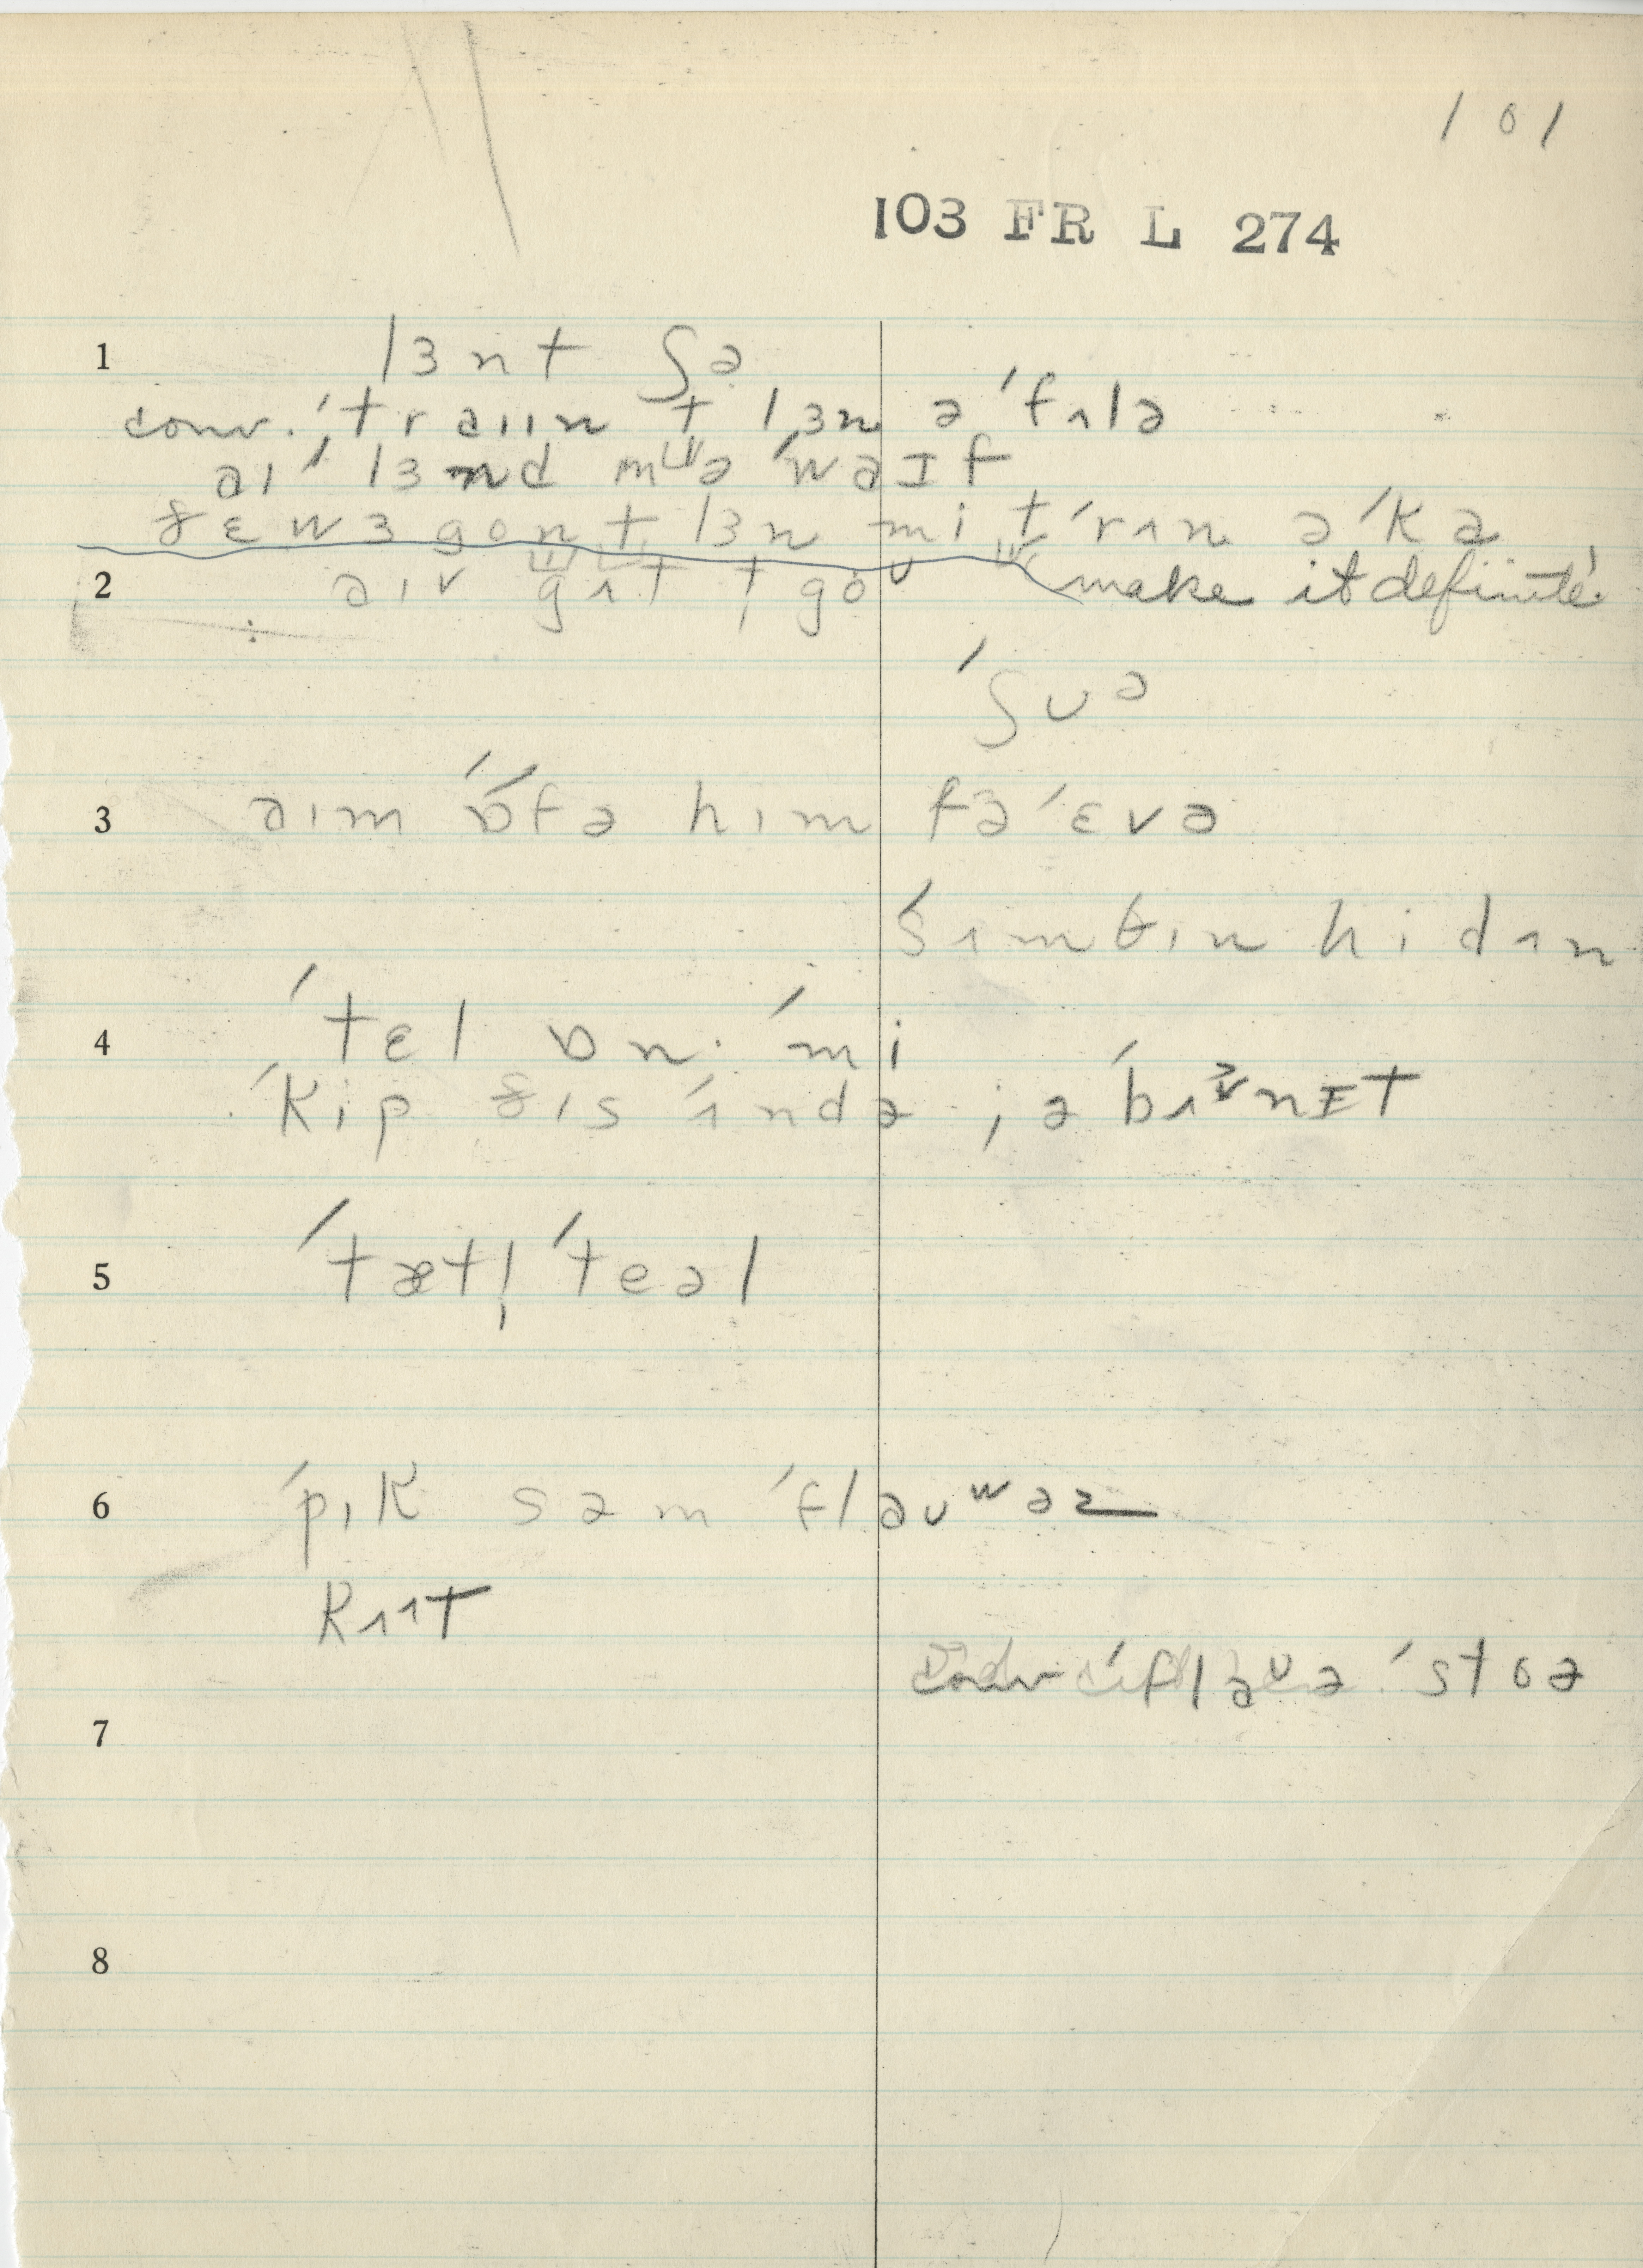 101
103 FR L 274
1 lɜnt ʃə
conv. ˈtraɪɪn t lɜn ə ˈfʌlə
aɪ ˈlɜnd mᶶə ˈwaɪf
ðɛ wɜ gon t lɜn mi t ˈrʌn ə ˈka
2 aɪv gʌt t goᶷ make it definite.
ˈʃʊə
3 aɪm ˈɒ́ftə hɪm fə ˈɛvə
ˈsʌmθɪn hi dʌn
4 ˈtɛl ɒn ˈmi
ˈkip ðɪs ˈʌndə jə ˈbʌnɪt
5 ˈtætl̩ ˈteəl
6 ˈpɪk səm ˈflaʊʷəz
kʌɪt
conv ˈflaᶷə ˈstoə
7
8